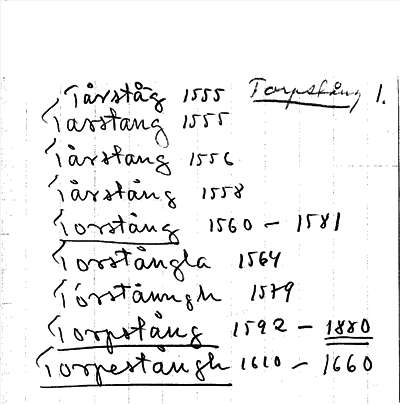 Tårståg 1555 Torpstång 1.
Tarstang 1555
Tårstang 1556
Tårstång 1558
Torstång 1560 – 1581
Torstångla 1564
Tórstånngh 1579
Torpstång 1592 – 1880
Torpestångh 1610 – 1660